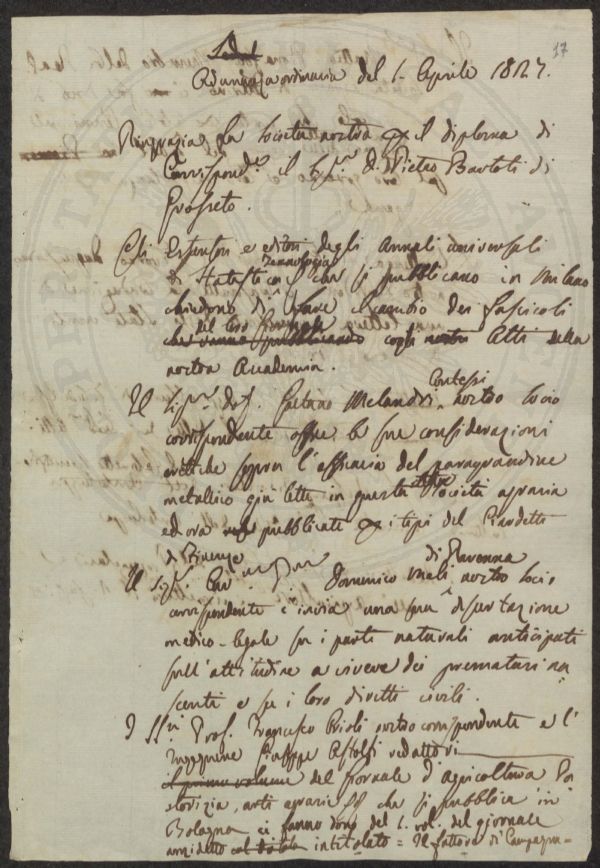 17
Adunanza ordinaria del 1. Aprile 1827.
Ringrazia la Società nostra per il diploma di
Corrispond.e il Sig.r D. Pietro Bartoli di
Grosseto.
Gli Estensori e editori degli Annali universali
di Statistica Tecnologia &c che si pubblicano in Milano
chiedono di fare il cambio dei fascicoli
del loro giornale cogli Atti della
nostra Accademia.
Il Sig.r Gaetano Melandri Contessi nostro Socio
corrispondente offre le sue considerazioni
critiche sopra l'efficacia del paragrandine
metallico già lette in questa Società agraria
ed ora pubblicate per i tipi del Piardetti
di Firenze
Il Sig.r Domenico Mali di Ravenna nostro Socio
corrispondente c'invia una sua disertazione
medico-legale su i parti naturali anticipati
sull'attitudine a vivere dei prematuri na
scenti e su i loro diritti civili.
I SS.ri Prof. Francesco Orioli nostro corrispondente e l'
Ingegnere Giuseppe Astolfi redattori
il primo volume del Giornale d'agricoltura Pa
storizia, arti agrarie che si pubblica in
Bologna ci fanno dono del 1. vol. del giornale
anzidetto intitolato = Il fattore di Campagna=